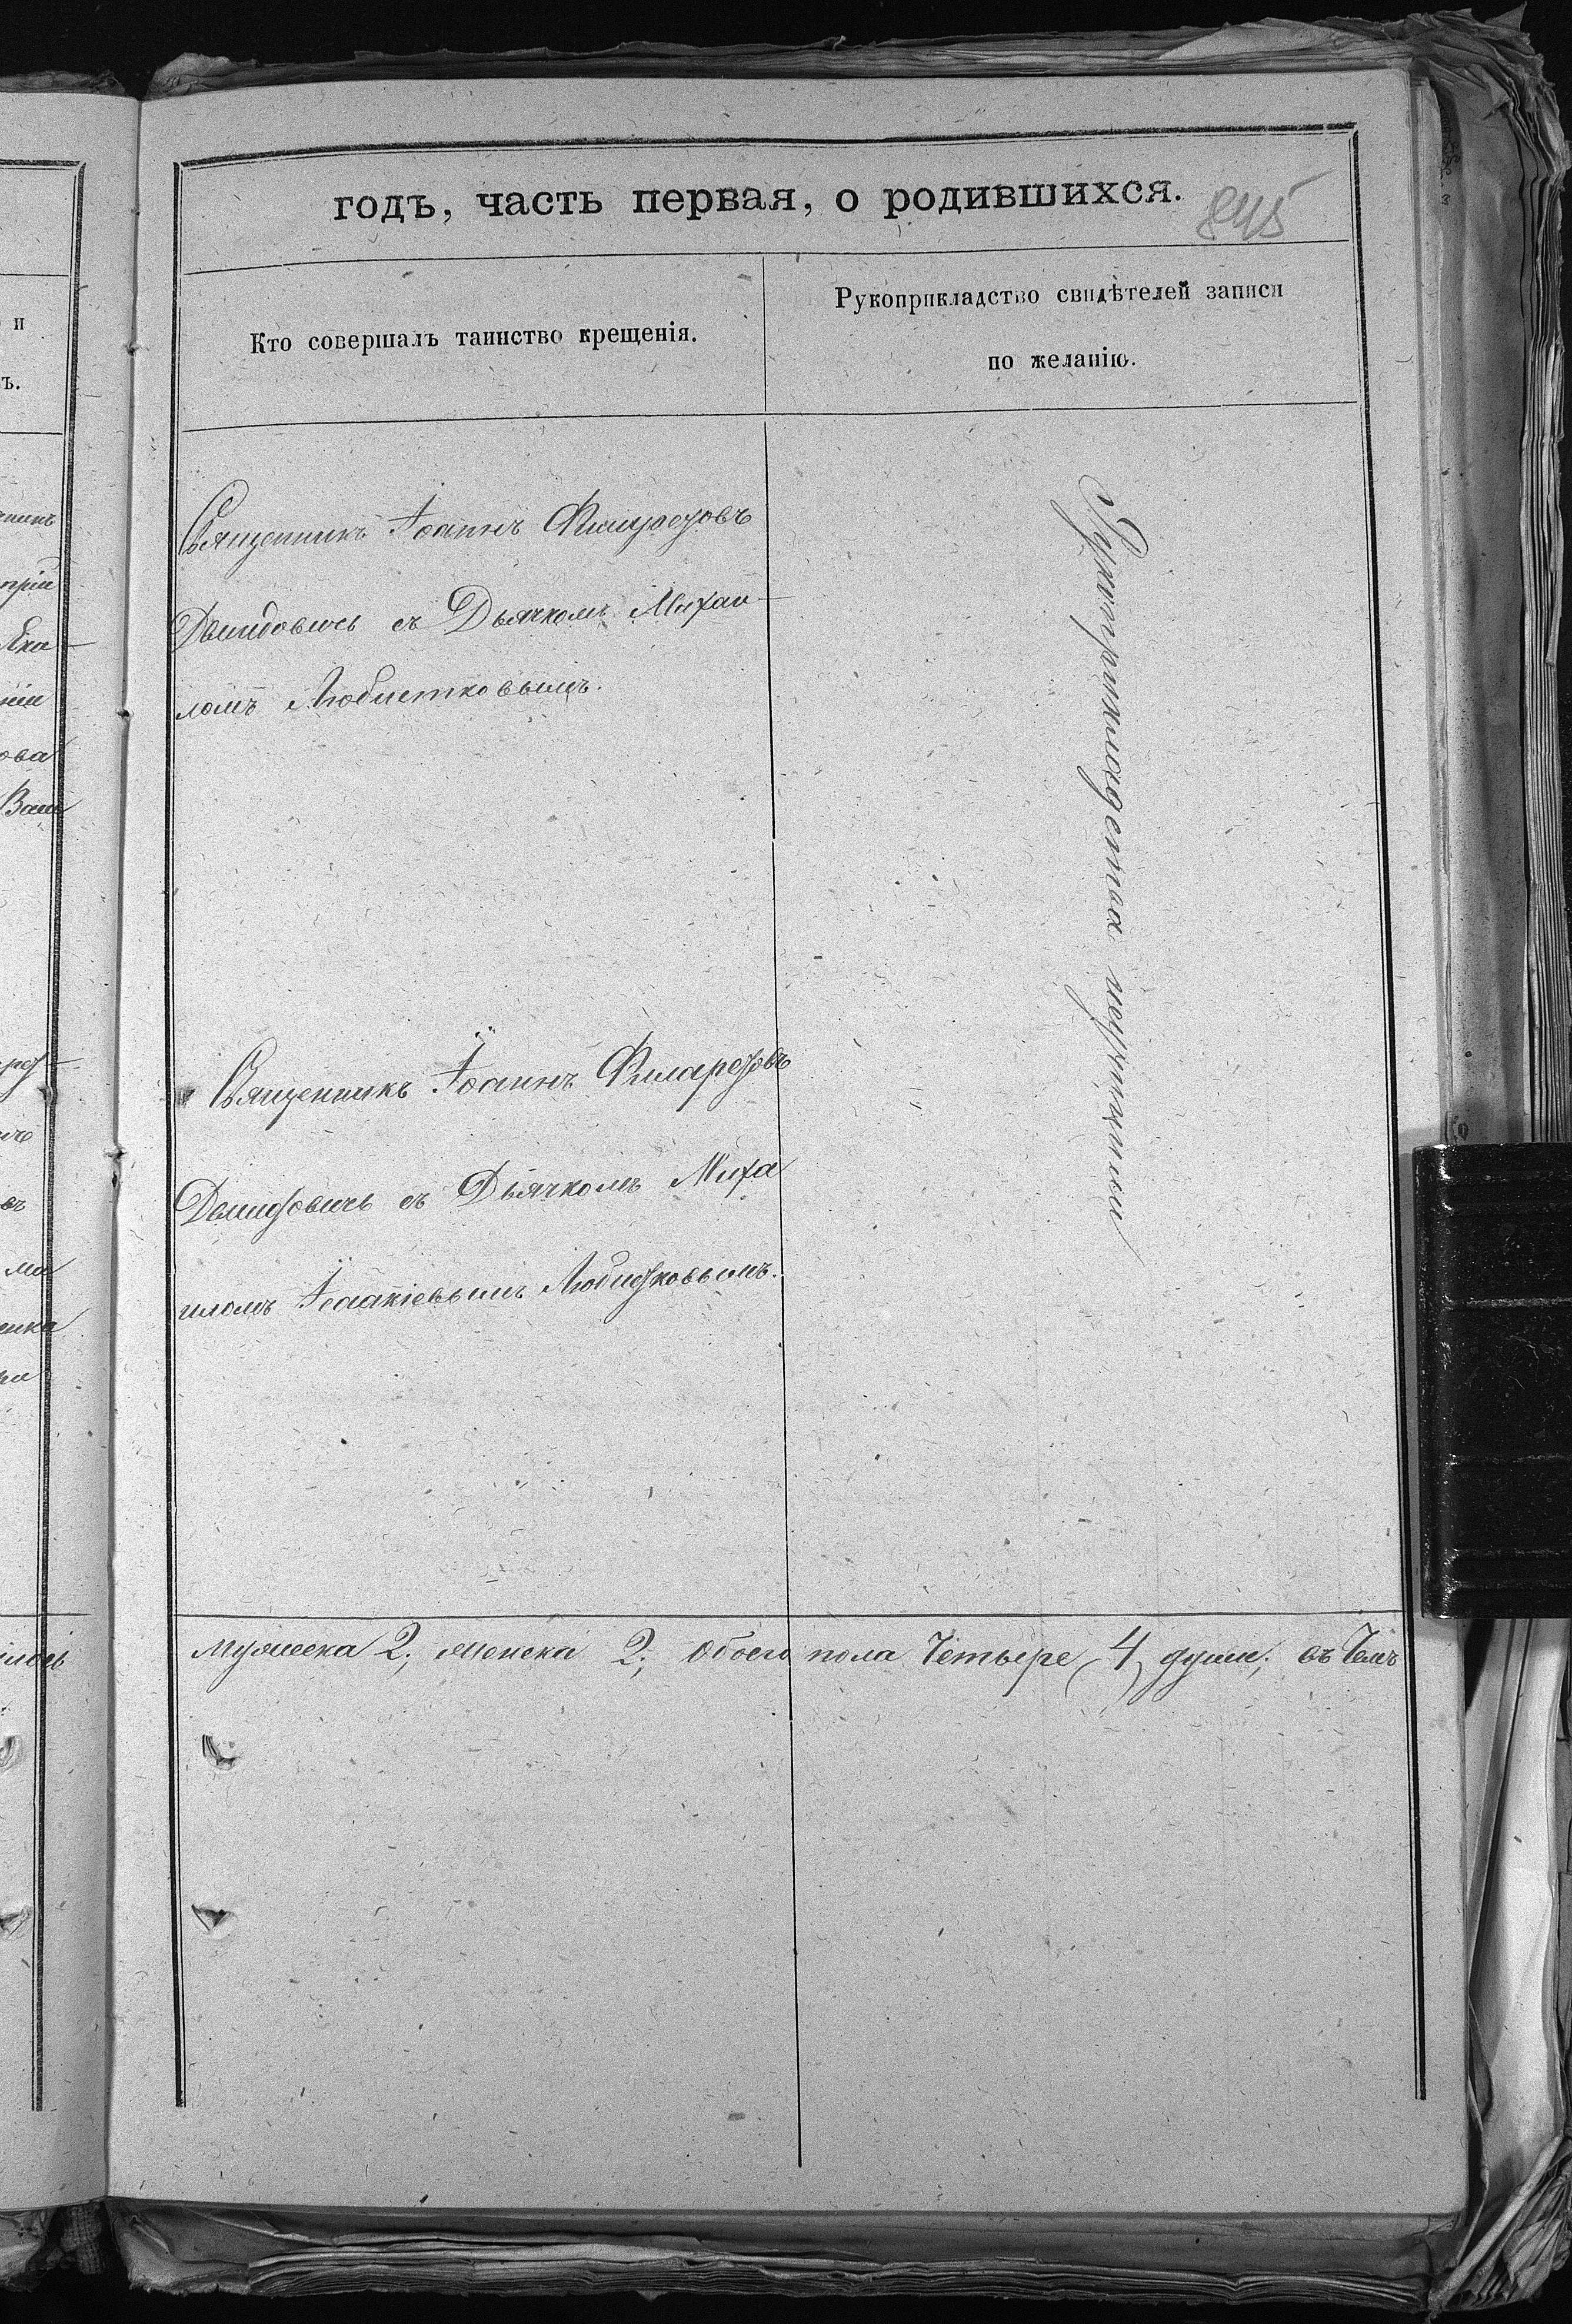 годъ, часть первая, о родившихся.
845
Кто совершалъ таинство крещенія.
Рукоприкладство свидѣтелей записи
по желанію.
Священникъ Іоаннъ Филаретовъ
Демидовичъ съ Дьячкомъ Михаи-
ломъ Любитковымъ.
Священникъ Іоаннъ Филаретовъ
Демидовичъ съ Дьячкомъ Миха
иломъ Ісаакіевымъ Любитковымъ.
Рукоприкладства неучинили
Мужеска 2; Женска 2; Обоего пола Четыре (4) души; въ Чемъ